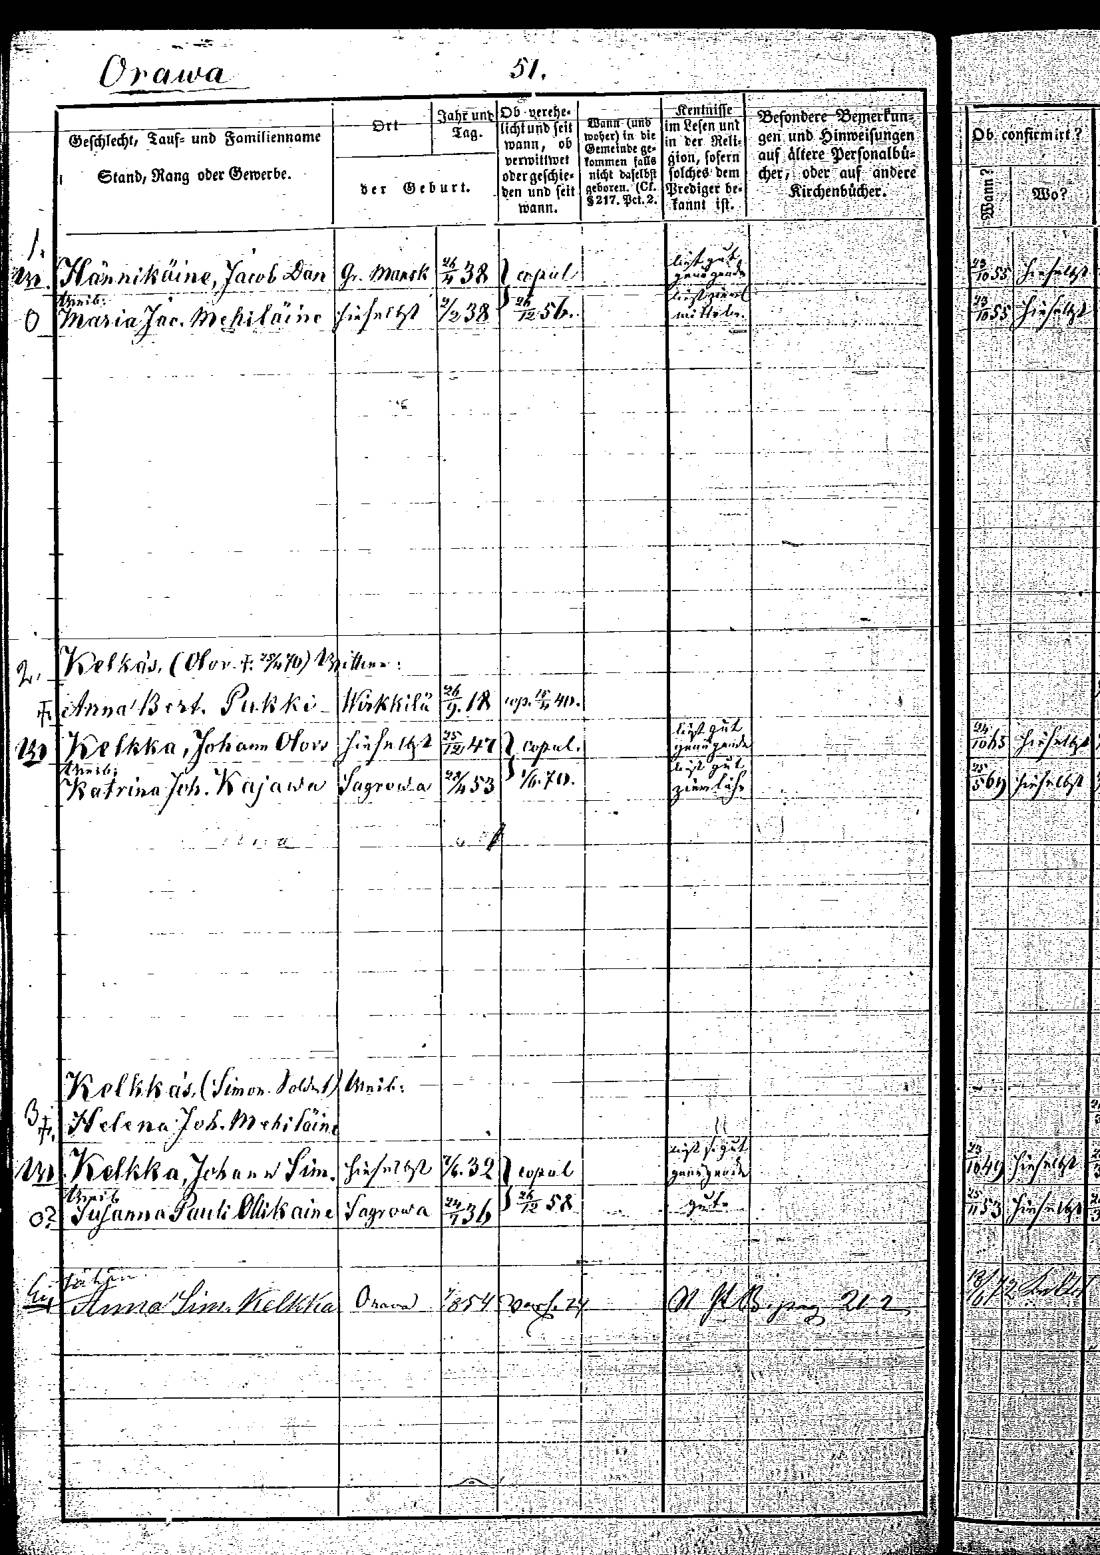 Orawa 51.
Geschlecht, Tauf- und Familienname
Stand, Rang oder Gewerbe.
Ort
Jahr und
Tag.
der Geburt.
Ob verehe-
licht und seit
wann, ob
verwittwet
oder geschie-
den und seit
wann.
Wann (und
woher) in die
Gemeinde ge-
kommen falls
nicht daselbst
geboren. (Cf.
§ 217. Pct. 2.
Kentnisse
im Lesen und
in der Reli-
gion, sofern
solches dem
Prediger be-
kannt ist.
Besondere Bemerkun-
gen und Hinweisungen
auf ältere Personalbü-
cher, oder auf andere
Kirchenbücher.
Ob confirmirt?
Wann?
Wo?
1.
Hännikäine, Jacob Dan Gr. Manok 38 copul liest gut genügende 23/10 55 hieselbst
Weib:
0 Maria Jac. Mehiläine hieselbst 2/2 38 26/12 56. mittelm. 23/10 55 hieselbst
2. Kelkäs, (Olov. †. 70) Wittwe:
†. Anna Bert. Pukki Wirkkilä 26/9. 18 cop. 40.
Kelkka, Johann Olovs hieselbst 25/12 47 copul. liest gut genügende 24/10 65 hieselbst
Weib:
Katrina Joh. Kajawa Sagrowa 53 1/6. 70. liest gut ziemlich 25/5 69 hieselbst
Kelkkäs, (Simon. Soldat) Weib:
3. †. Helena Joh. Mehiläine
Kelkka, Johann Sim. hieselbst 7/6. 32 copul liest s. gut genügende 23/10 49 hieselbst
Weib
0? Susanna Pauli Ollikaine Sagrowa 24/1 36 26/12 58 gut. 25/11 53 hieselbst
Anna Sim. Kelkka Orawa 54 pag 212